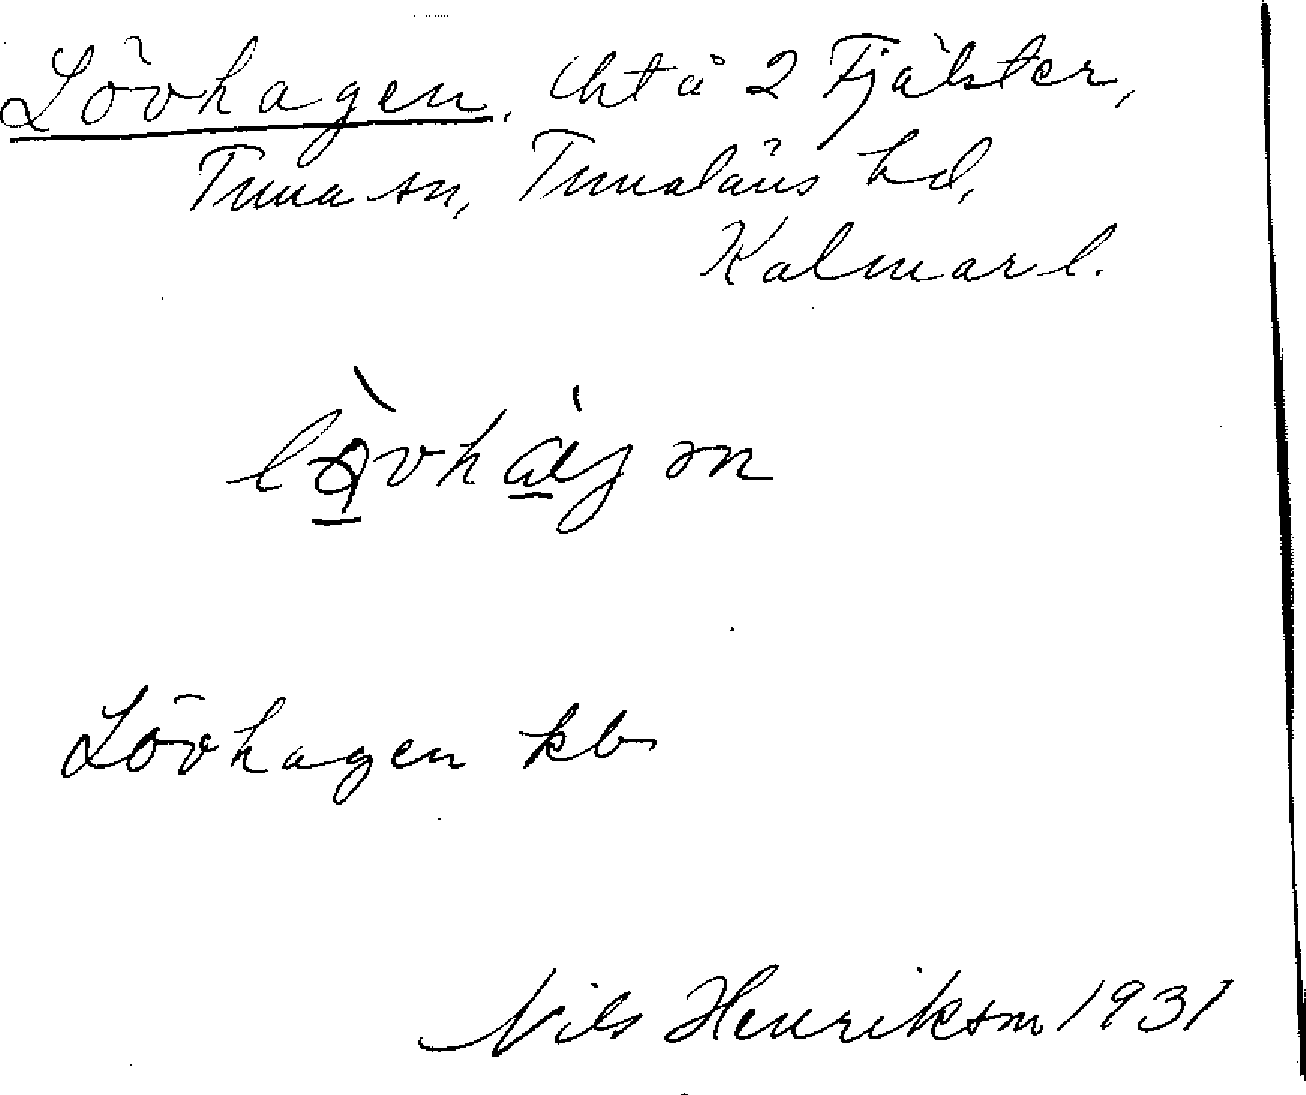 Lövhagen, lht å 2 Fjälster,
Tuna sn, Tunaläns hd,
Kalmar l.
Lövhagen kb
Nils Henrikson 1931